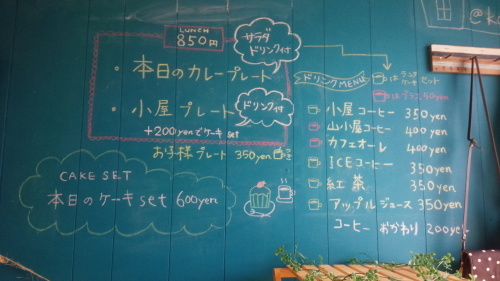 LUNCH
850円
サラダ
ドリンク付
・本日のカレープレート
・小屋プレート
ドリンク付
+200yenでケーキset
お子様プレート 350yen
CAKE SET
本日のケーキset 600yen
ドリンクMENU
は ランチ ケーキ セット
はプラス50yen
小屋コーヒー 350yen
山小屋コーヒー 400yen
カフェオーレ 400yen
ICEコーヒー 350yen
紅茶 350yen
アップルジュース 350yen
コーヒーおかわり 200yen